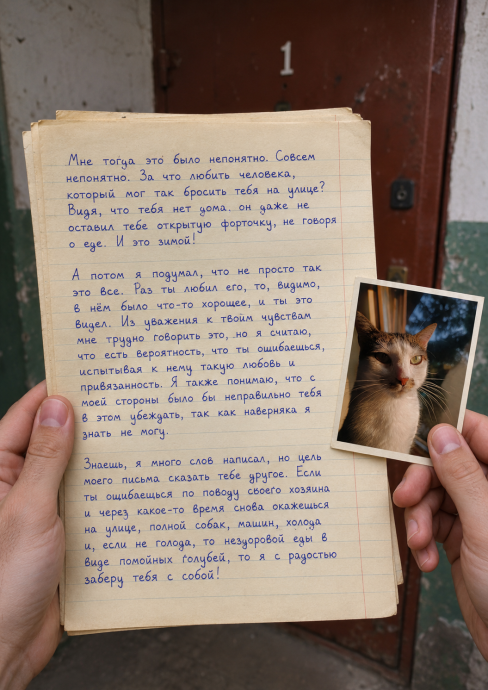 1
Мне тогда это было непонятно. Совсем
непонятно. За что любить человека,
который мог так бросить тебя на улице?
Видя, что тебя нет дома. он даже не
оставил тебе открытую форточку, не говоря
о еде. И это зимой!
А потом я подумал, что не просто так
это все. Раз ты любил его, то, видимо,
в нём было что-то хорошее, и ты это
видел. Из уважения к твоим чувствам
мне трудно говорить это, но я считаю,
что есть вероятность, что ты ошибаешься,
испытывая к нему такую любовь и
привязанность. Я также понимаю, что с
моей стороны было бы неправильно тебя
в этом убеждать, так как наверняка я
знать не могу.
Знаешь, я много слов написал, но цель
моего письма сказать тебе другое. Если
ты ошибаешься по поводу своего хозяина
и через какое-то время снова окажешься
на улице, полной собак, машин, холода
и, если не голода, то нездоровой еды в
виде помойных голубей, то я с радостью
заберу тебя с собой!